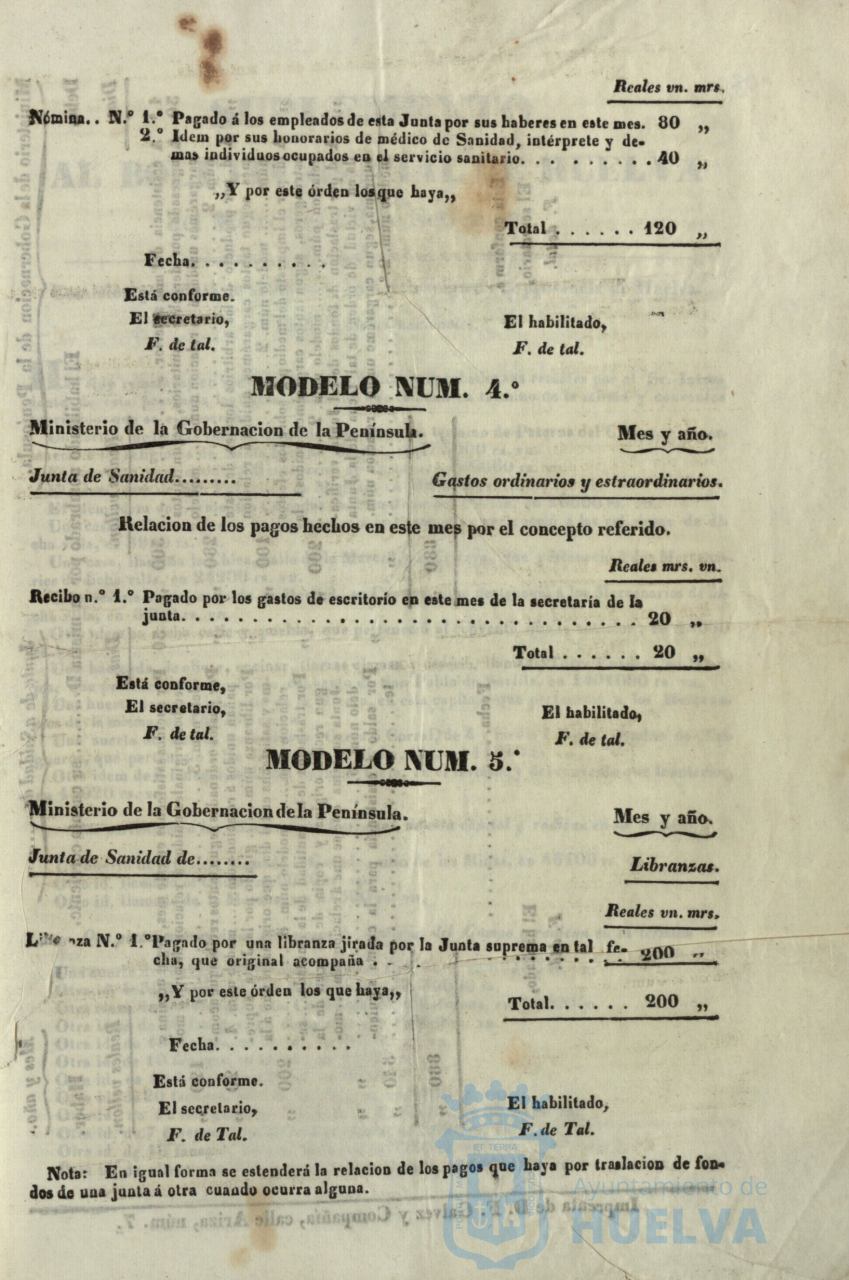 Reales vn. mrs.
Nómina.. N.º 1.º Pagado á los empleados de esta Junta por sus haberes en este mes. 80 ,,
2.º Idem por sus honorarios de médico de Sanidad, intérprete y de-
mas individuos ocupados en el servicio sanitario. . . . . . . . . 40 ,,
,,Y por este órden los que haya,,
Total . . . . . . 120 ,,
Fecha. . . . . . . . . .
Está conforme.
El secretario,
El habilitado,
F. de tal.
F. de tal.
MODELO NUM. 4.º
Ministerio de la Gobernacion de la Península.
Mes y año.
Junta de Sanidad.........
Gastos ordinarios y estraordinarios.
Relacion de los pagos hechos en este mes por el concepto referido.
Reales mrs. vn.
Recibo n.º 1.º Pagado por los gastos de escritorío en este mes de la secretaría de la
junta. . . . . . . . . . . . . . . . . . . . . . . . . . . . . . . . 20 ,,
Total . . . . . . 20 ,,
Está conforme,
El secretario,
El habilitado,
F. de tal.
F. de tal.
MODELO NUM. 5.º
Ministerio de la Gobernacion de la Península.
Mes y año.
Junta de Sanidad de........
Libranzas.
Reales vn. mrs.
N.º 1.º Pagado por una libranza jirada por la Junta suprema en tal fe-
cha, que original acompaña . . . . . . . . . 200 ,,
,,Y por este órden los que haya,,
Total. . . . . . 200 ,,
Fecha. . . . . . . . . .
Está conforme.
El secretario,
El habilitado,
F. de Tal.
F. de Tal.
Nota: En igual forma se estenderá la relacion de los pagos que haya por traslacion de fon-
dos de una junta á otra cuando ocurra alguna.
Ayuntamiento de
HUELVA